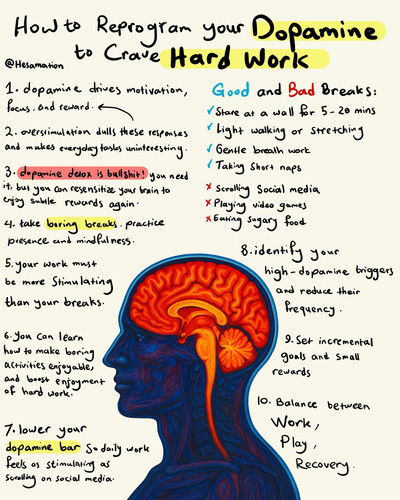 How to Reprogram your Dopamine
to Crave Hard Work
@Hesamation
1. dopamine drives motivation,
focus, and reward.
2. overstimulation dulls these responses
and makes everyday tasks uninteresting.
3. dopamine detox is bullshit! you need
it, but you can resensitize your brain to
enjoy subtle rewards again.
4. take boring breaks. practice
presence and mindfulness.
5. your work must
be more stimulating
than your breaks.
6. you can learn
how to make boring
activities enjoyable,
and boost enjoyment
of hard work.
7. lower your
dopamine bar so daily work
feels as stimulating as
scrolling on social media.
Good and Bad Breaks:
✓ Stare at a wall for 5-20 mins
✓ Light walking or stretching
✓ Gentle breath work
✓ Taking short naps
✗ Scrolling Social media
✗ Playing video games
✗ Eating sugary food
8. identify your
high-dopamine triggers
and reduce their
frequency.
9. Set incremental
goals and small
rewards
10. Balance between
Work,
Play,
Recovery.